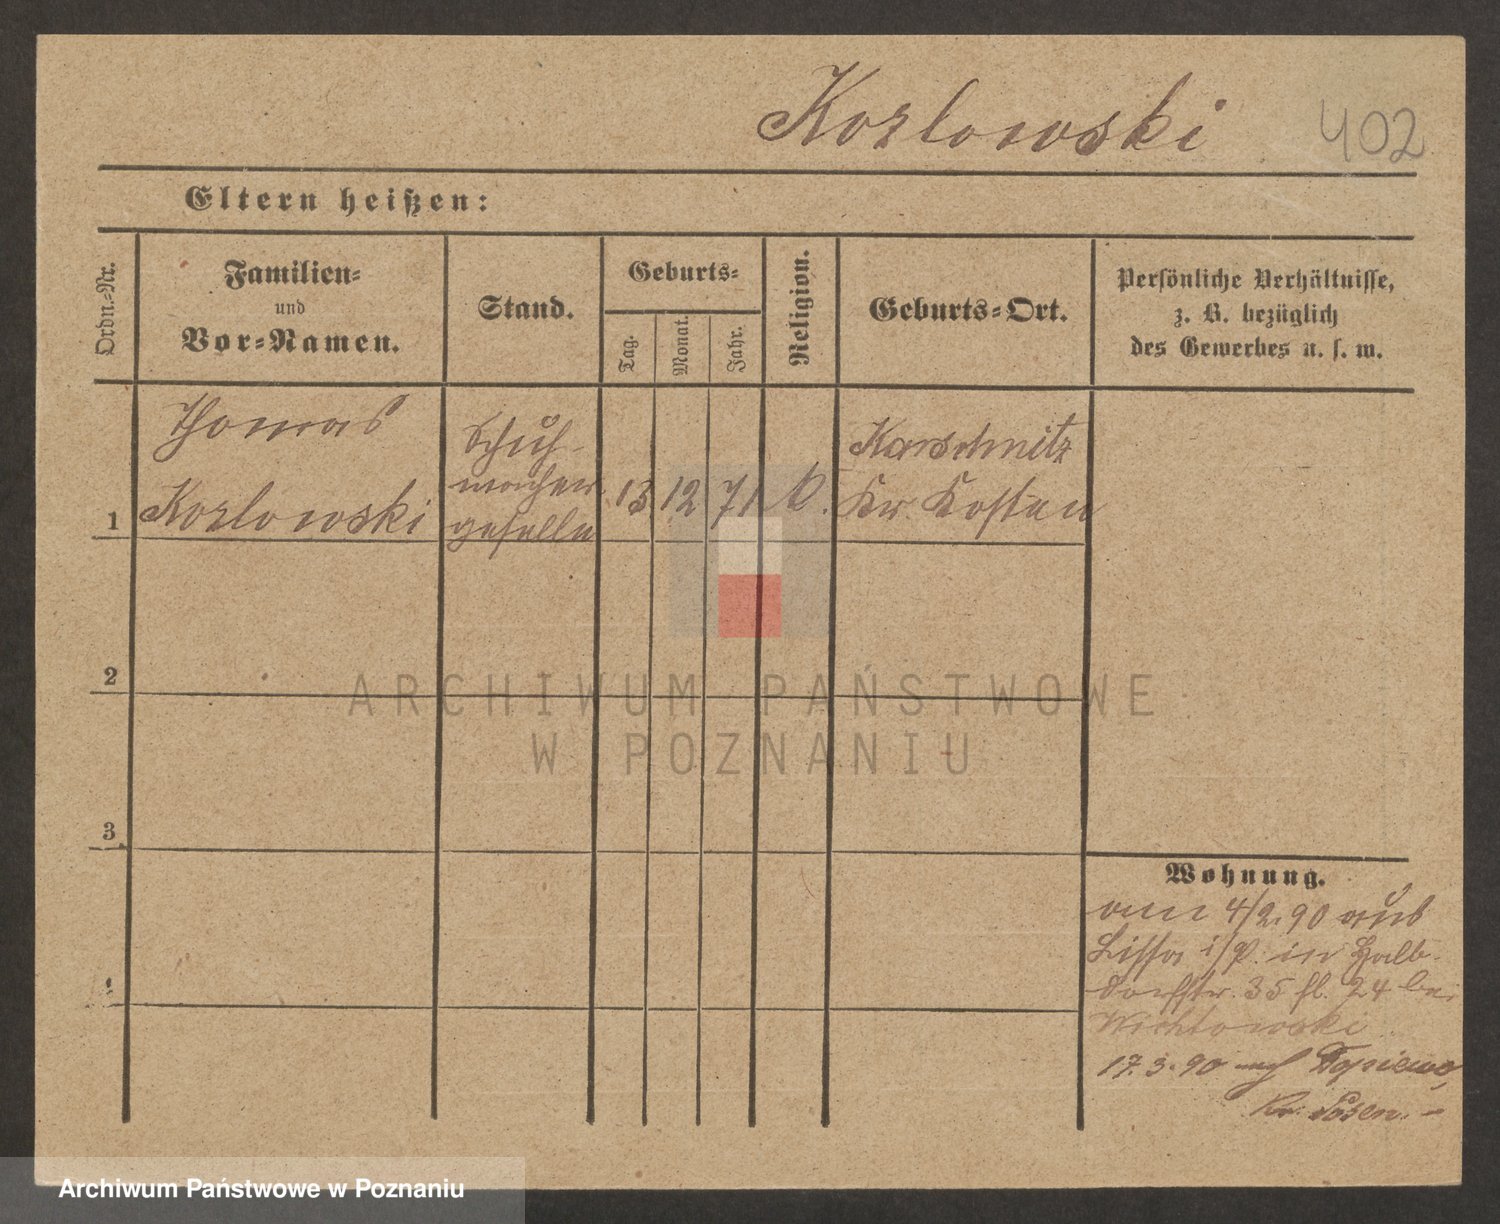 Kozlowski 402
Eltern heißen:
Ordn.-Nr.
Familien-
und
Vor-Namen.
Stand.
Geburts-
Tag.
Monat.
Jahr.
Religion.
Geburts-Ort.
Persönliche Verhältnisse,
z. B. bezüglich
des Gewerbes u. s. w.
1
Thomas
Kozlowski
Schuh-
macher
geselle
13
12
71
k.
Karschnitz
Kr. Kosten
2
3
4
Wohnung.
am 4/2.90 aus
Lissa i/P. in Halb-
dorfstr. 35 fl. 24 bei
Wichtowski
17.3.90 nach Dopiewo,
Kr. Posen. -
ARCHIWUM PAŃSTWOWE
W POZNANIU
Archiwum Państwowe w Poznaniu